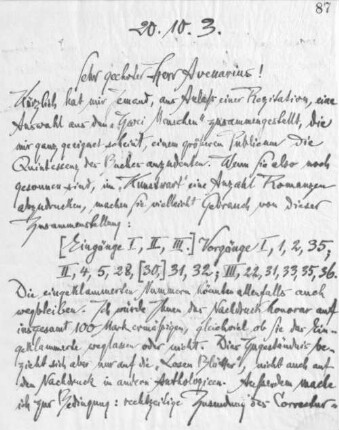 87
20.10.3.
Sehr geehrter Herr Avenarius!
Kürzlich hat mir Jemand, aus Anlaß einer Rezitation, eine
Auswahl aus den "Zwei Menschen" zusammengestellt, die
mir ganz geeignet scheint, einem größeren Publicum die
Quintessenz des Buches anzudeuten. Wenn Sie also noch
gesonnen sind, im "Kunstwart" eine Anzahl Romanzen
abzudrucken, machen Sie vielleicht Gebrauch von dieser
Zusammenstellung:
[Eingänge I, II, III.] Vorgänge I, 1, 2, 35;
II, 4, 5, 28, [30,] 31, 32; III, 22, 31, 33, 35, 36.
Die eingeklammerten Nummern könnten allenfalls auch
wegbleiben. Ich würde Ihnen das Nachdruckhonorar auf
insgesamt 100 Mark ermäßigen, gleichviel ob Sie das Ein-
geklammerte weglassen oder nicht. Dies Zugeständnis be-
zieht sich aber nur auf die "Losen Blätter", nicht auch auf
den Nachdruck in andern Anthologieen. Außerdem mache
ich zur Bedingung: rechtzeitige Zusendung der Correctur-